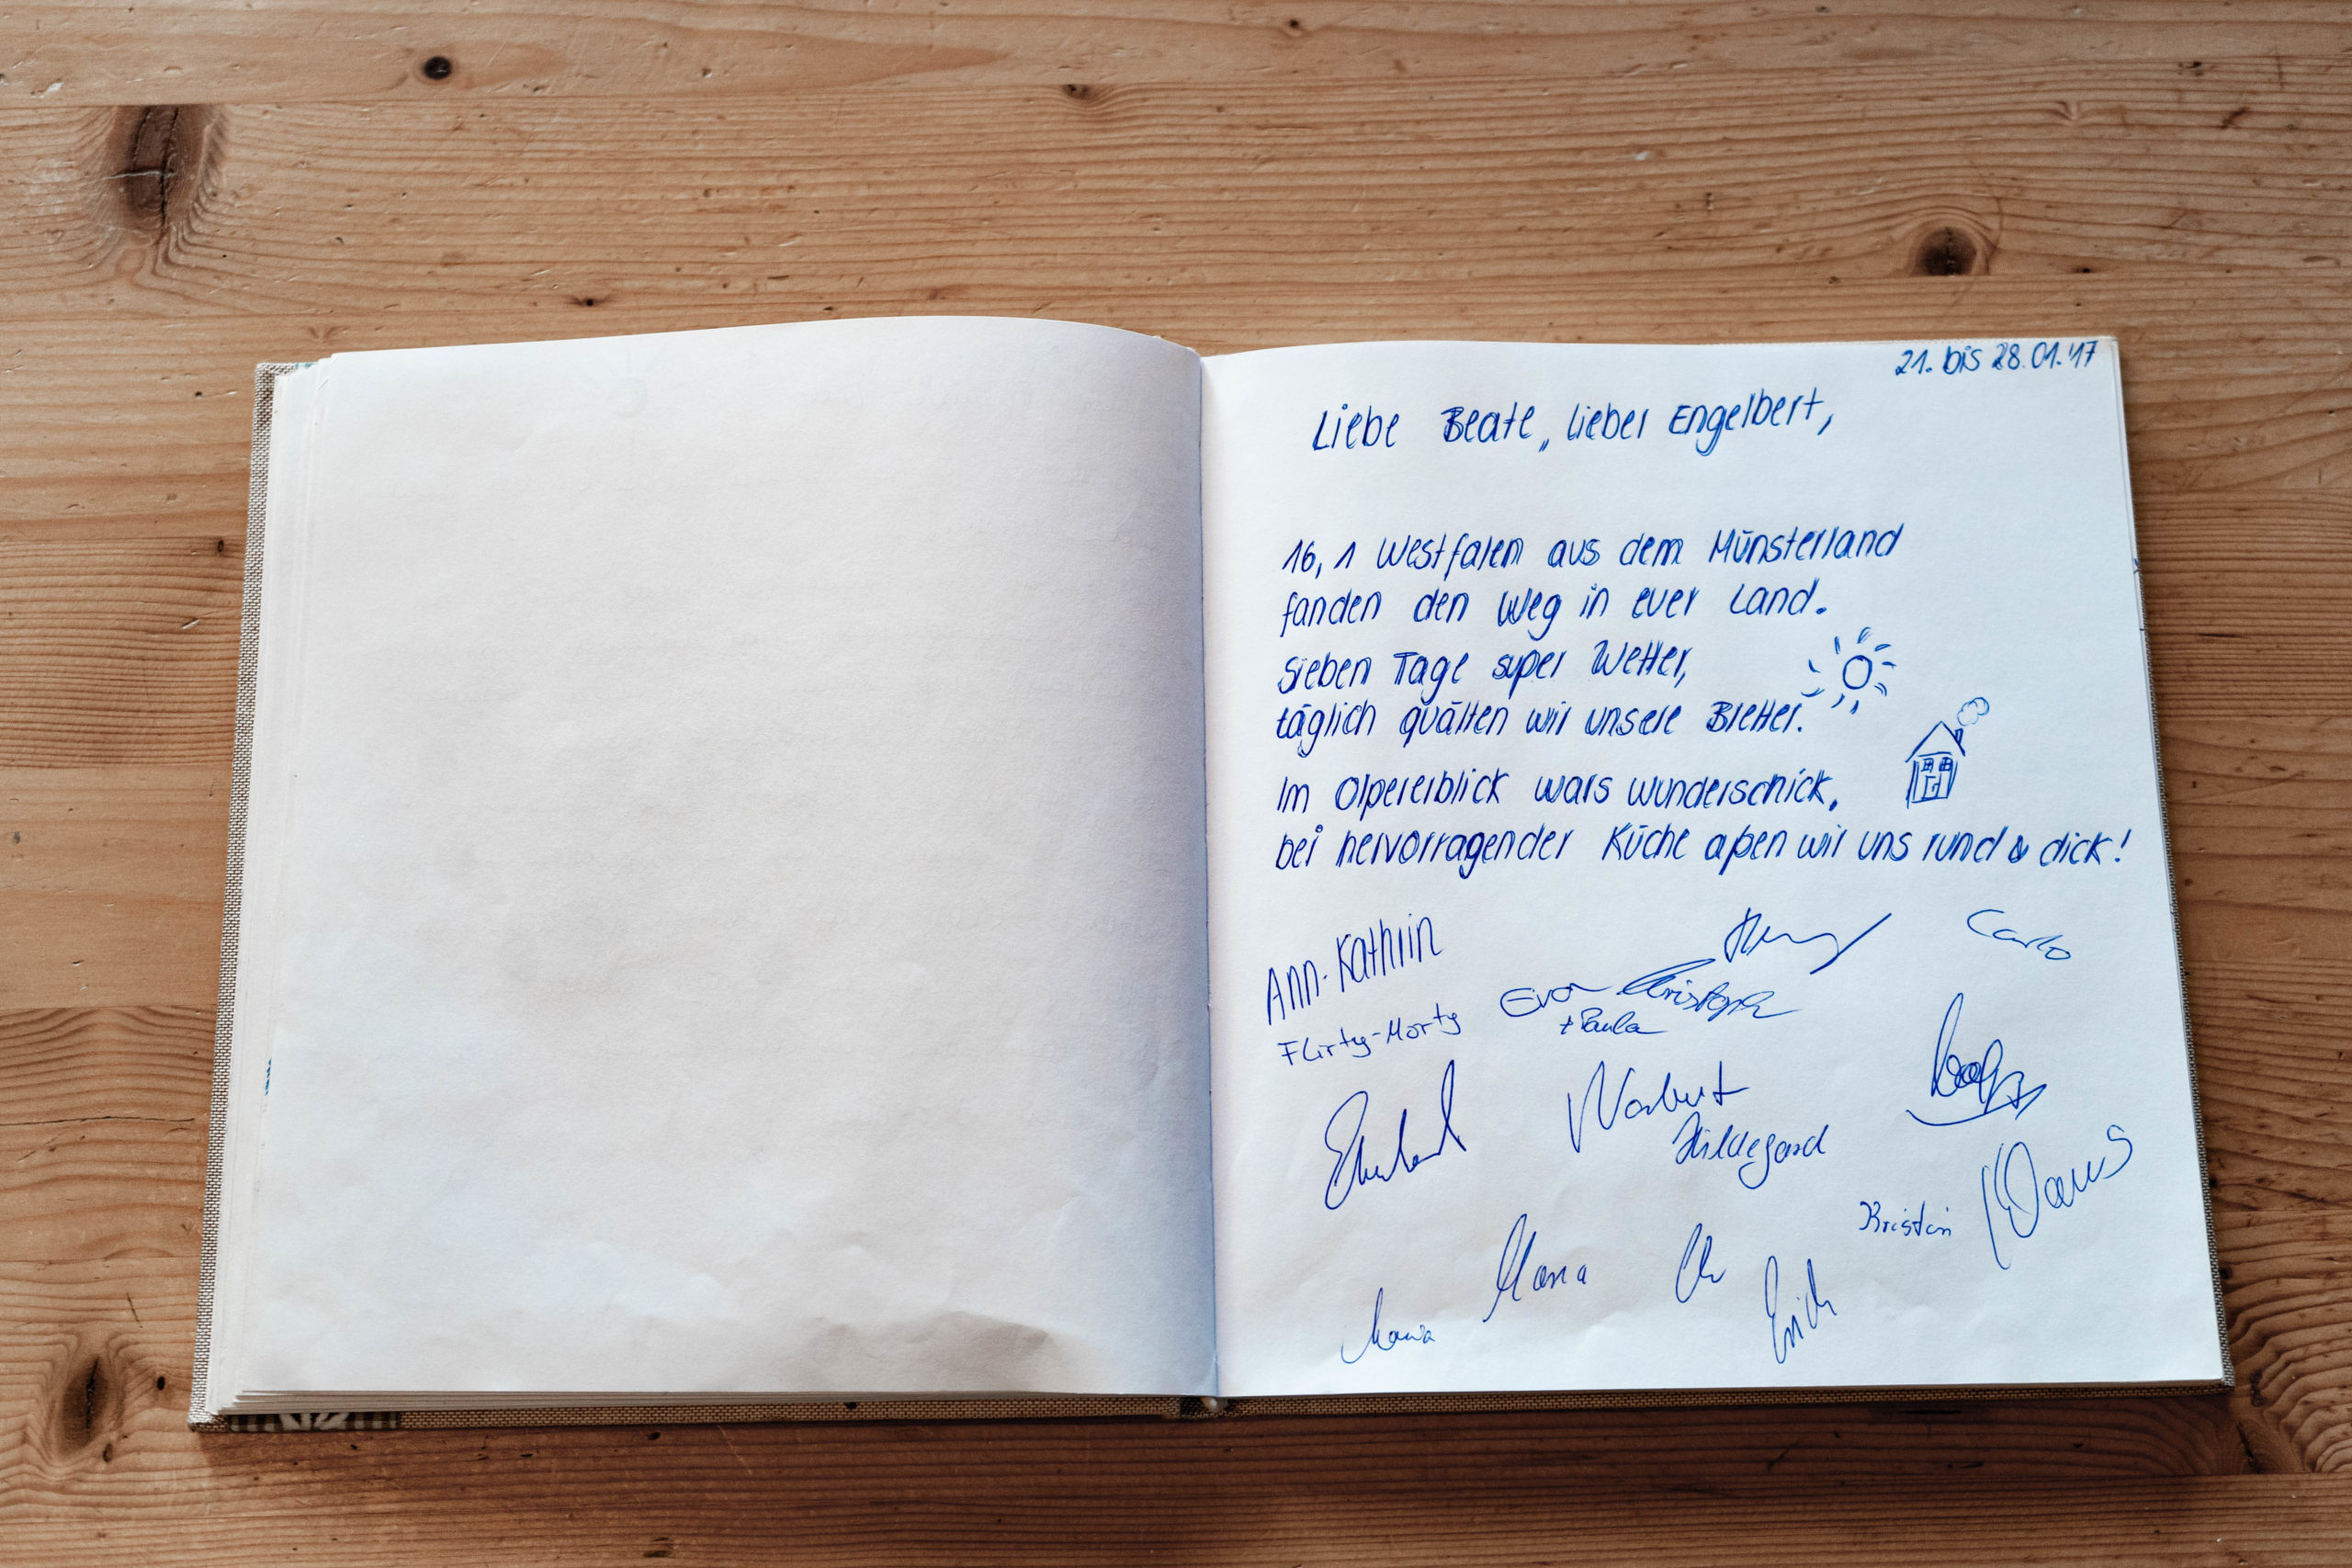 21. bis 28.01.'17
Liebe Beate, lieber Engelbert,
16,1 Westfalen aus dem Münsterland
fanden den Weg in euer Land.
Sieben Tage super Wetter,
täglich quälten wir unsere Bretter.
Im Olpererblick wars wunderschick,
bei hervorragender Küche aßen wir uns rund & dick!
Ann-Kathrin
Carlo
Flirty-Morty
Eva Christoph
+ Paula
Norbert
Hildegard
Kristin
Klaus
Maria
Erich
Maria